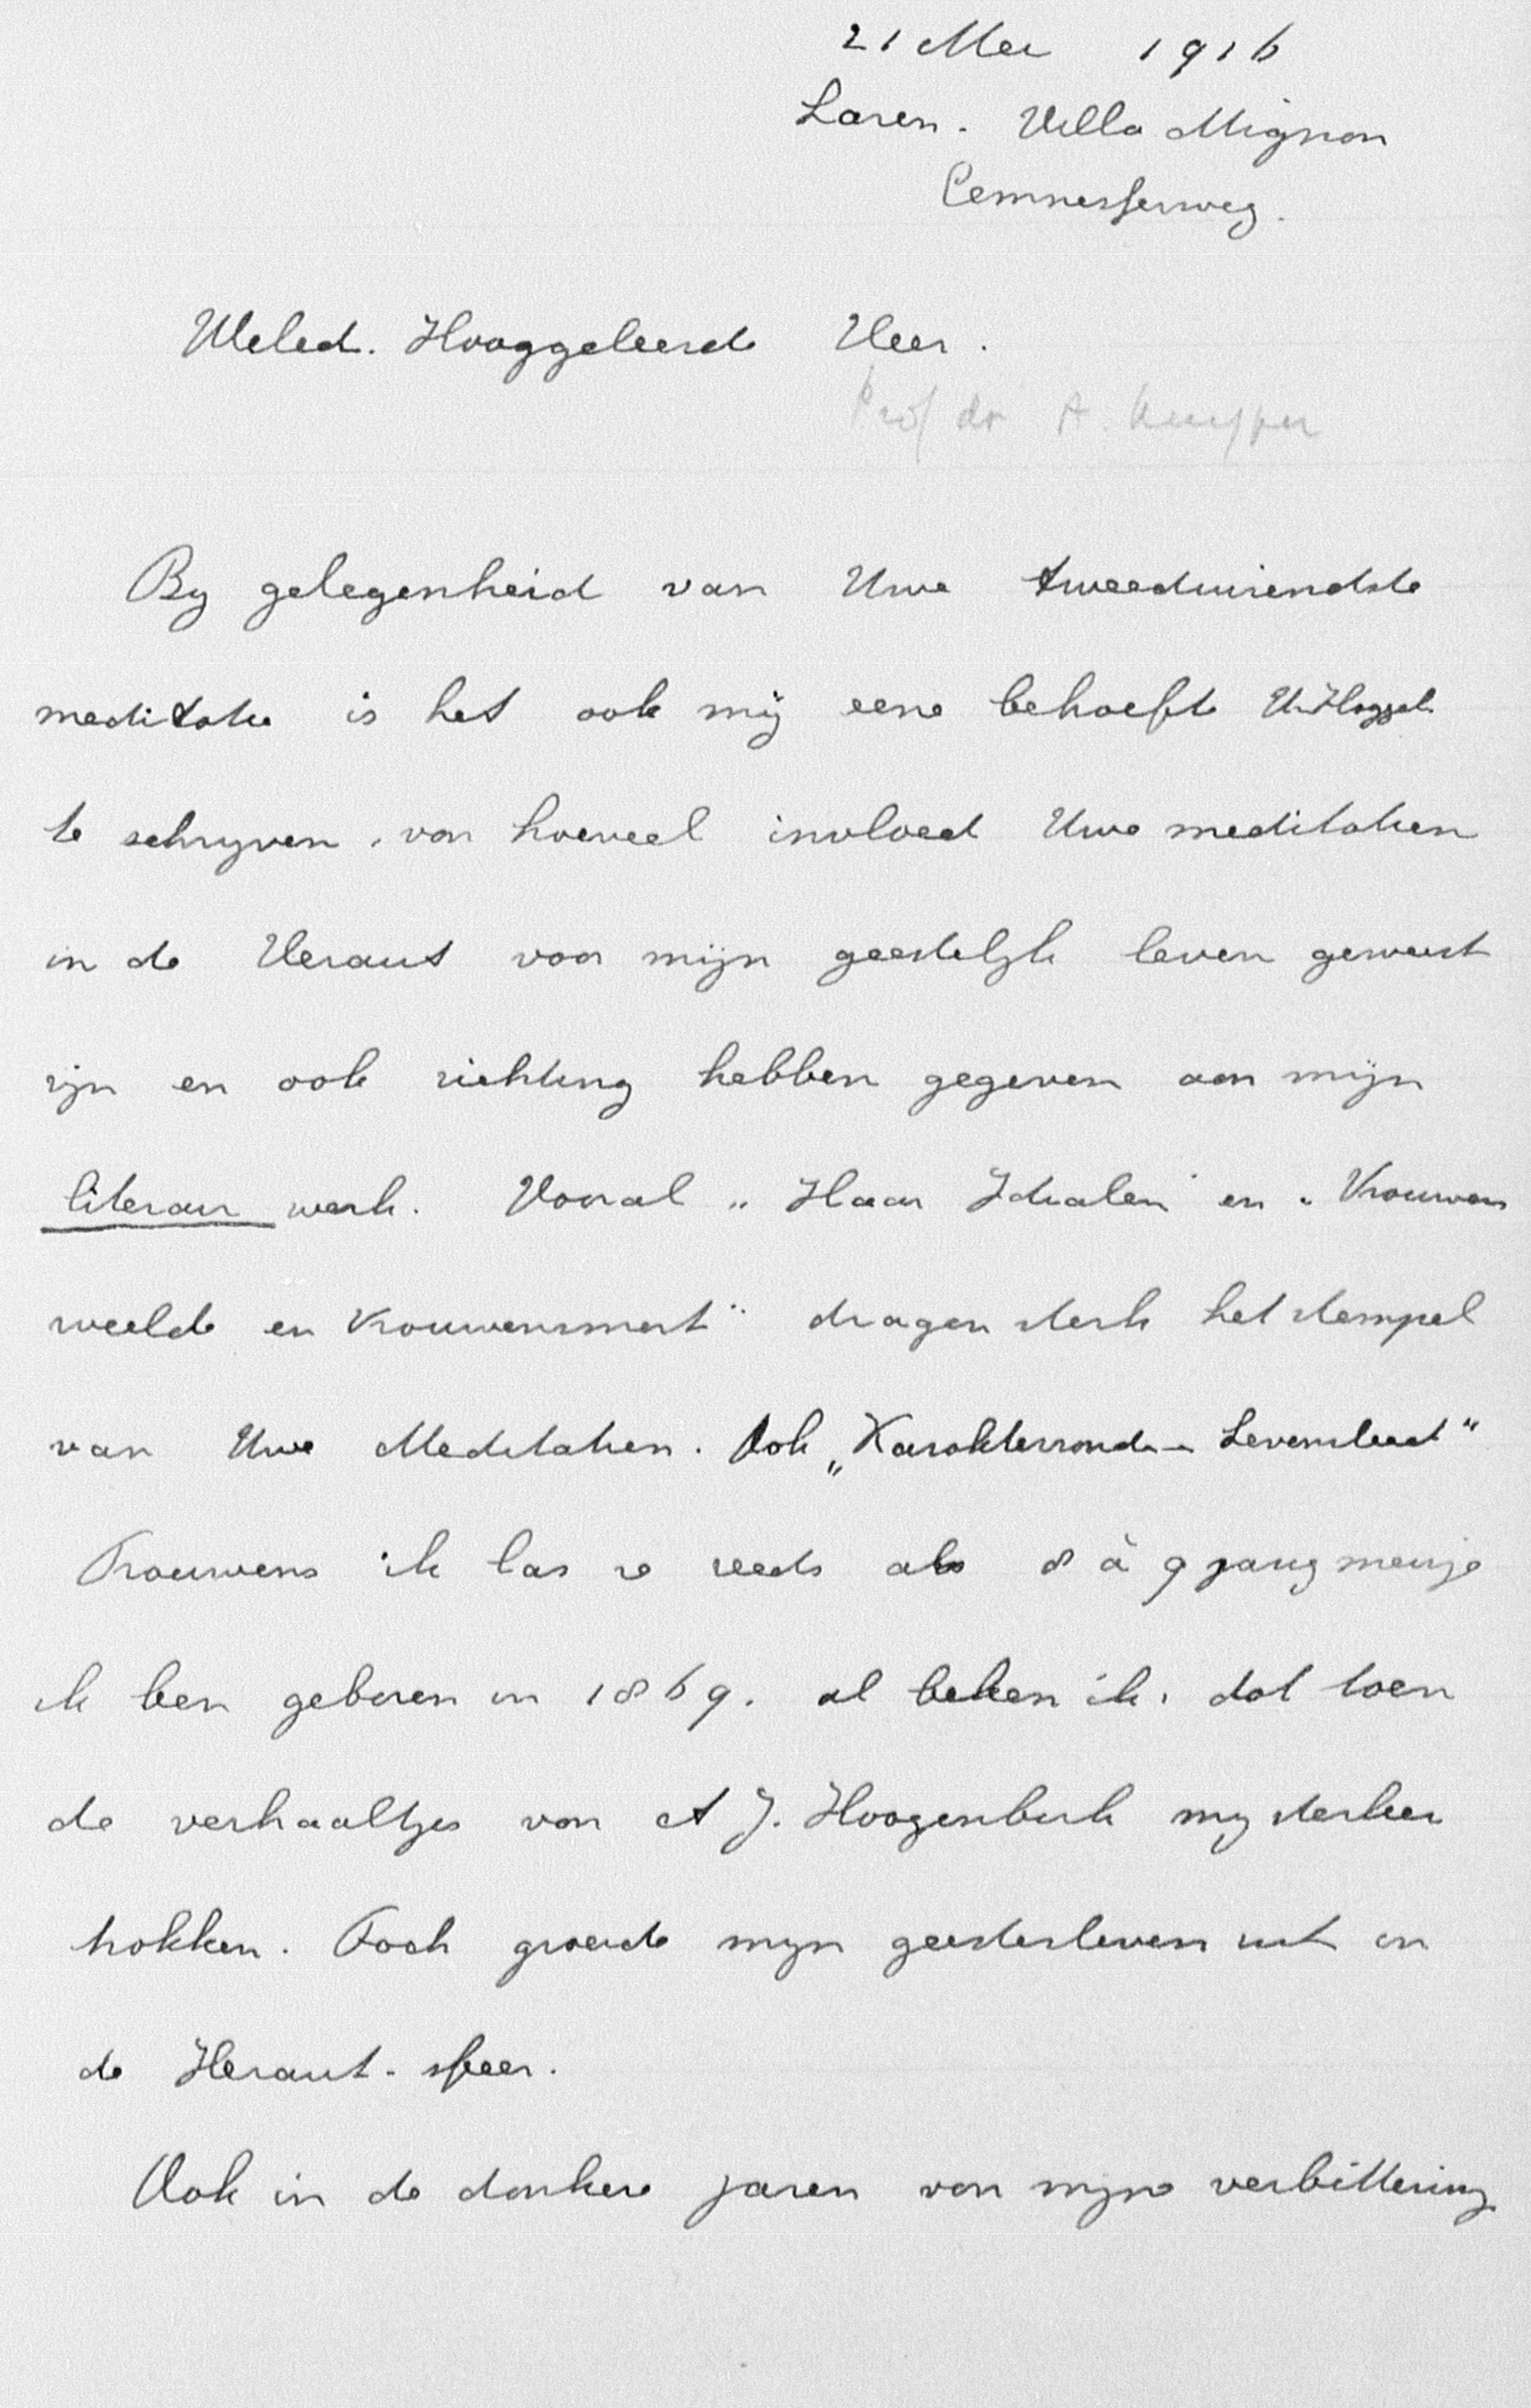 21 Mei 1916
Laren. Villa Mignon
Eemnesserweg.
Weled. Hooggeleerde Heer.
Prof dr A. Kuyper
By gelegenheid van Uwe tweeduizendste
meditatie is het ook mij eene behoefte U Hoggel.
te schryven, van hoeveel invloed Uwe meditatien
in de Heraut voor mijn geestelijk leven geweest
zijn en ook richting hebben gegeven aan mijn
literair werk. Vooral „Haar Idealen" en „Vrouwen
weelde en Vrouwensmart" dragen sterk het stempel
van Uwe Meditatien. Ook „Karakterzonde - Levensleed"
Trouwens ik las ze reeds als 8 à 9 jarig meisje
ik ben geboren in 1869. al beken ik, dat toen
de verhaaltjes van A J. Hoogenbirk my sterker
trokken. Toch groeide myn geestesleven uit in
de Heraut-sfeer.
Ook in de donkere jaren van myne verbittering